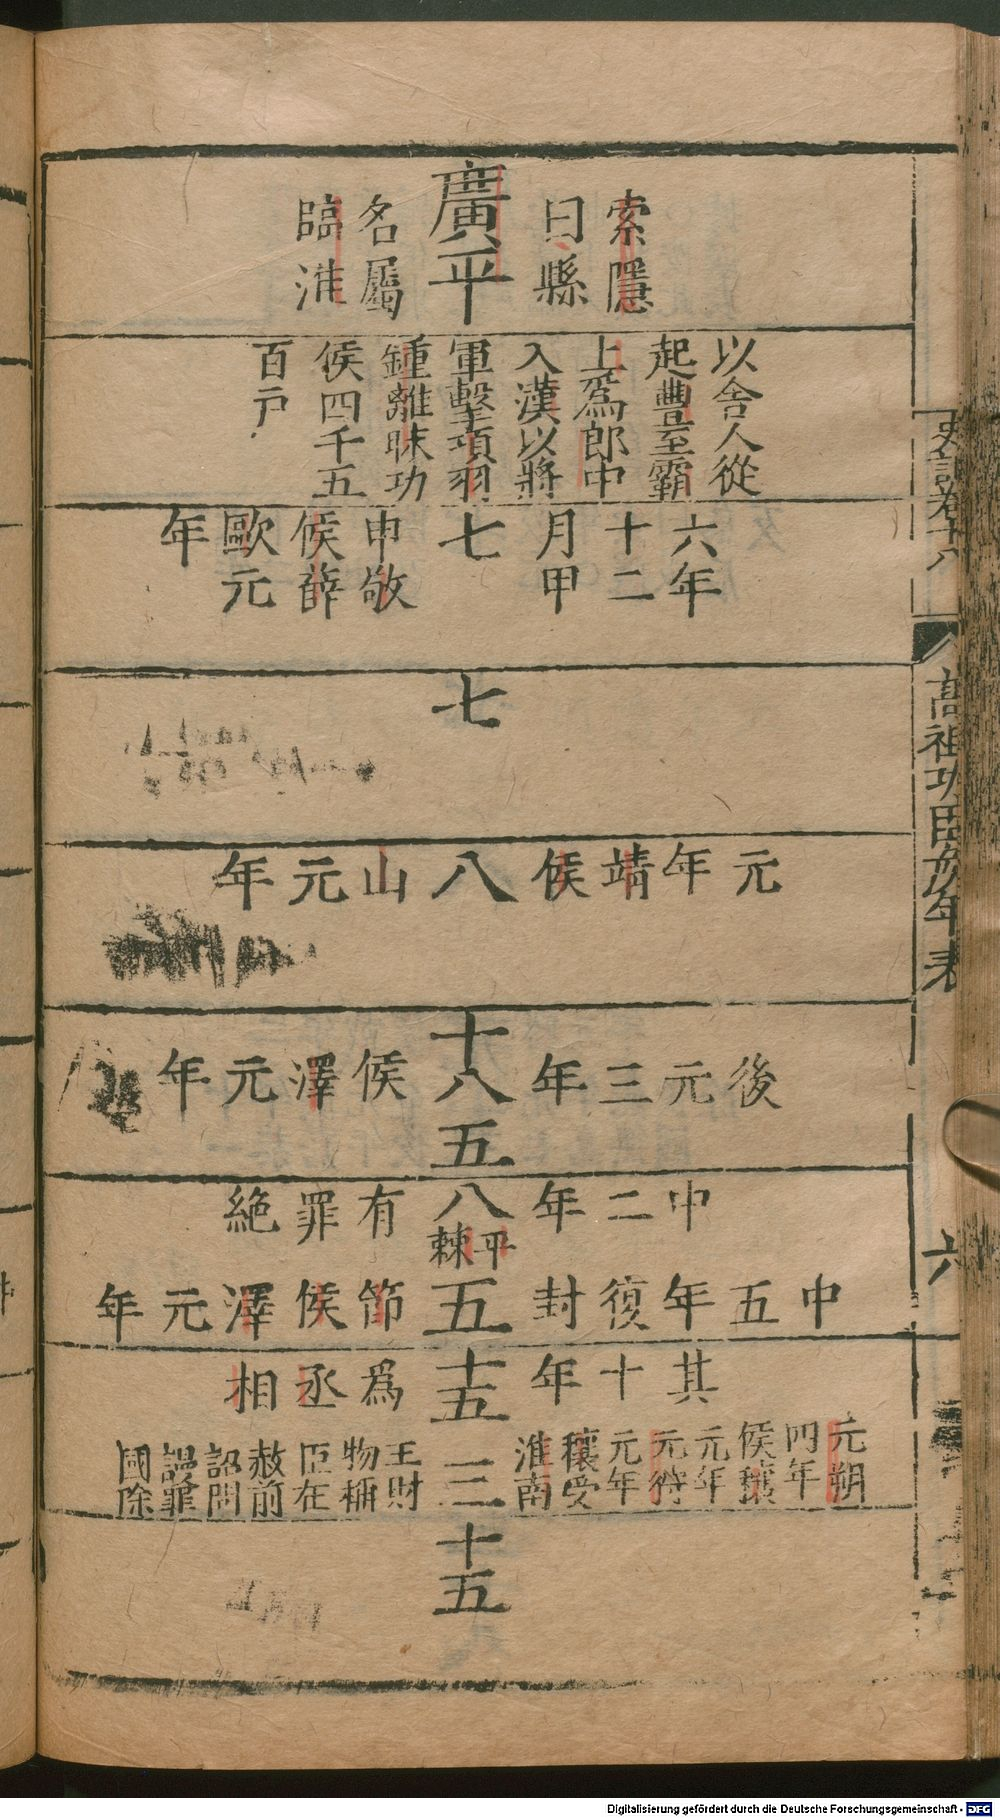 史記卷十八
高祖功臣侯年表
六
索隱
曰縣
廣平
名屬
臨淮
以舍人從
起豐至霸
上爲郎中
入漢以將
軍擊項羽
鍾離昧功
侯四千五
百戶
六年
十二
月甲
七
申敬
侯薛
歐元
年
七
元年靖侯
八
山元年
後元三年
十八
侯澤元年
五
中二年
八
有罪絕
平棘
中五年復封
五
節侯澤元年
其十年
十五
爲丞相
元朔
四年
侯穰
元年
元狩
元年
穰受
淮南
三
王財
物稱
臣在
赦前
詔問
謾罪
國除
十五
Digitalisierung gefördert durch die Deutsche Forschungsgemeinschaft - DFG